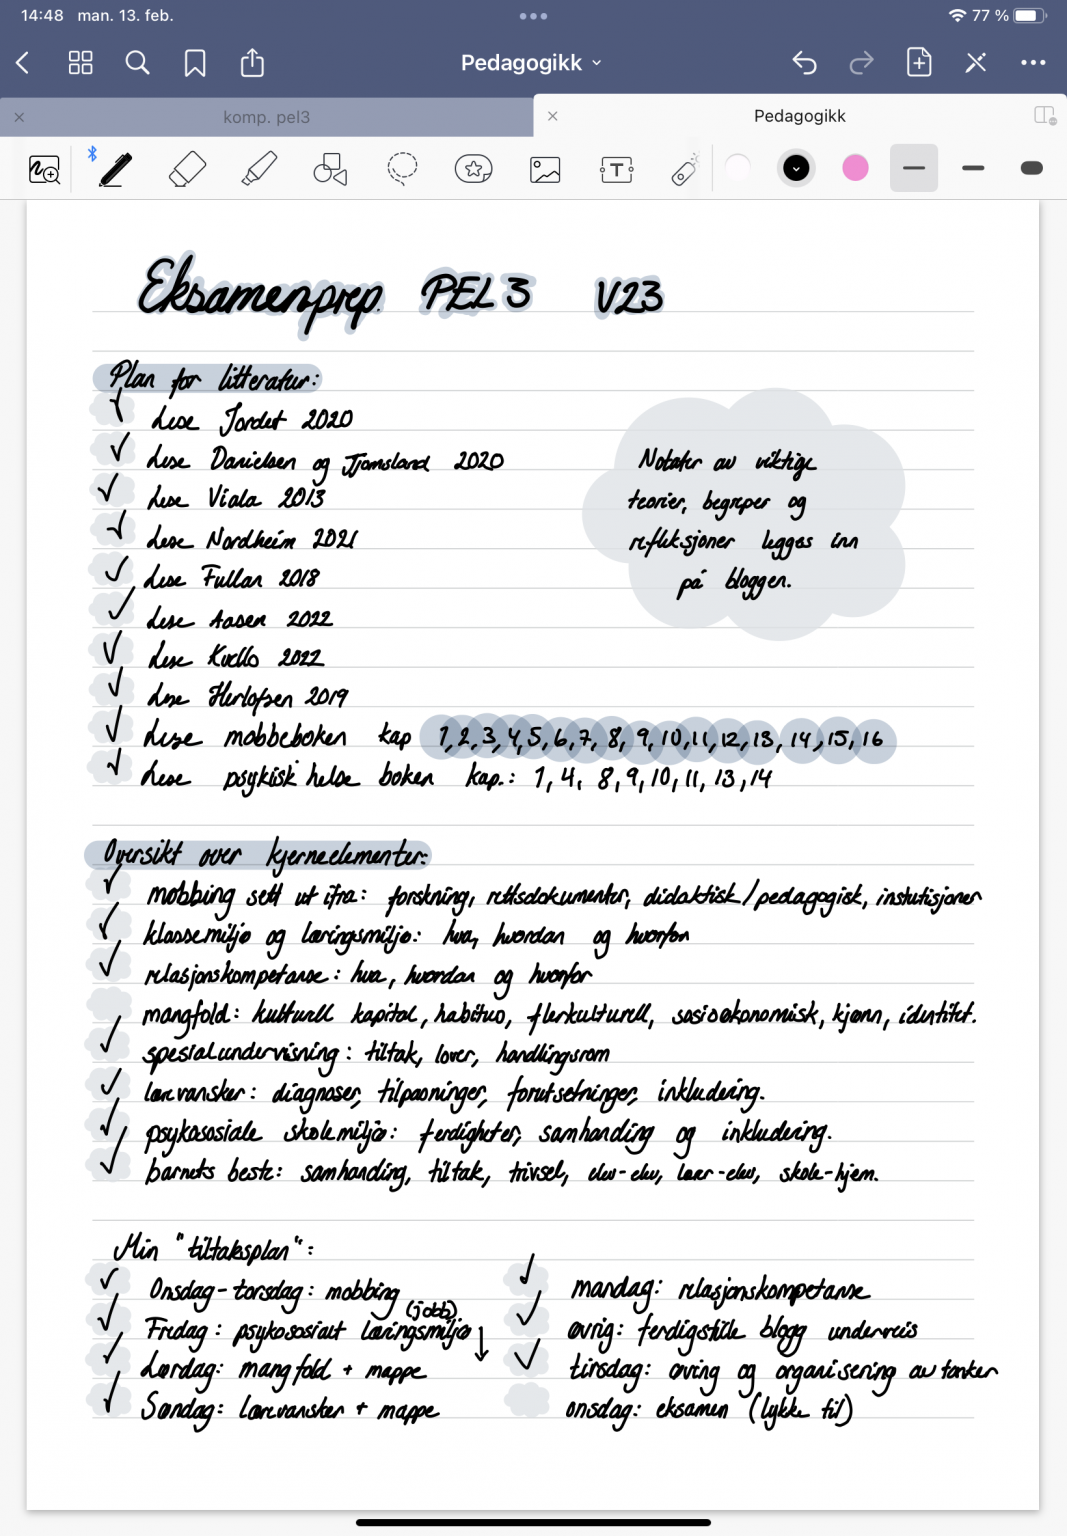 14:48 man. 13. feb.
77 %
Pedagogikk
komp. pel3
Pedagogikk
T
Eksamenprep. PEL 3 V23
Plan for litteratur:
Lese Jordet 2020
Lese Danielsen og Tjomsland 2020
Lese Viala 2013
Lese Nordheim 2021
Lese Fullan 2018
Lese Aasen 2022
Lese Kvello 2022
Lese Herlofsen 2019
Lese mobbeboken kap 1, 2, 3, 4, 5, 6, 7, 8, 9, 10, 11, 12, 13, 14, 15, 16
Lese psykisk helse boken kap.: 1, 4, 8, 9, 10, 11, 13, 14
Notater av viktige
teorier, begreper og
refleksjoner legges inn
på bloggen.
Oversikt over kjerneelementer:
mobbing sett ut ifra: forskning, rettsdokumenter, didaktisk/pedagogisk, instutisjoner
klassemiljø og læringsmiljø: hva, hvordan og hvorfor
relasjonskompetanse: hva, hvordan og hvorfor
mangfold: kulturell kapital, habitus, flerkulturell, sosioøkonomisk, kjønn, identitet.
spesialundervisning: tiltak, lover, handlingsrom
lærevansker: diagnoser, tilpasninger, forutsetninger, inkludering.
psykososiale skolemiljø: ferdigheter, samhanding og inkludering.
barnets beste: samhanding, tiltak, trivsel, elev-elev, lærer-elev, skole-hjem.
Min "tiltaksplan":
Onsdag-torsdag: mobbing
Fredag: psykososialt læringsmiljø (jobb)
Lørdag: mangfold + mappe
Søndag: lærevansker + mappe
mandag: relasjonskompetanse
øvrig: ferdigstille blogg underveis
tirsdag: øving og organisering av tanker
onsdag: eksamen (lykke til)